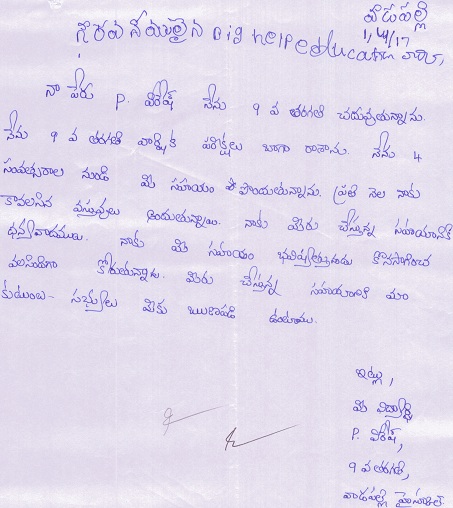 వాడపల్లి
1/4/17
గౌరవనీయులైన big help education వారి,
నా పేరు P. వీరేష్ నేను 9 వ తరగతి చదువుతున్నాను.
నేను 9 వ తరగతి వార్షిక పరీక్షలు బాగా రాశాను. నేను 4
సంవత్సరాల నుండి మీ సహాయం పొందుతున్నాను. ప్రతి నెల నాకు
కావలసిన వస్తువులు అందుతున్నాయి. నాకు మీరు చేస్తున్న సహాయానికి
ధన్యవాదములు. నాకు మీ సహాయం భవిష్యత్తులో కొనసాగించ
వలసిందిగా కోరుతున్నాను. మీరు చేస్తున్న సహాయానికి మా
కుటుంబ సభ్యులు మీకు ఋణపడి ఉంటాము.
ఇట్లు,
మీ విద్యార్థి
P. వీరేష్,
9 వ తరగతి,
వాడపల్లి